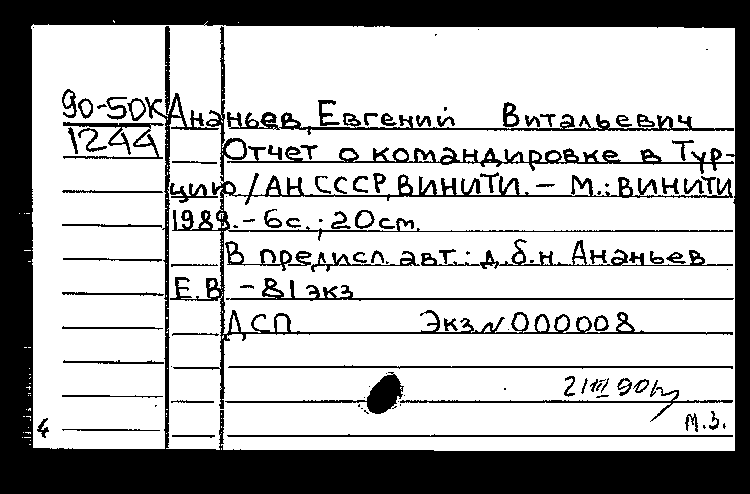 90-50К Ананьев, Евгений Витальевич
1244 Отчет о командировке в Тур-
цию / АН СССР, ВИНИТИ. – М.: ВИНИТИ
1989. – 6с.; 20см.
В предисл. авт.: д.б.н. Ананьев
Е.В – 81 экз
ДСП. Экз N 000008.
2 III 90
4 М.З.